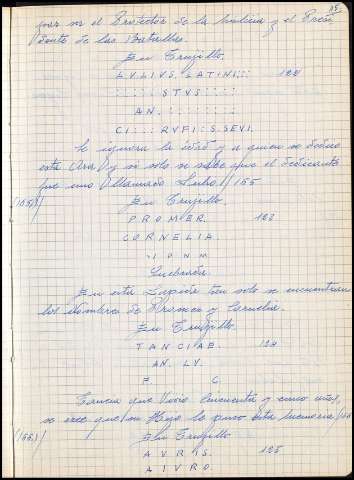 por ser el Protector de la Milicia y el Presi
dente de las Batallas.
En Trujillo.
LVLIVS. LATINI::: 122
:::: STVS ::::
AN. :::::::
CI::::. RVFI::S. SEVI.
Se ignora la edad y a quien se dedico
esta Ara y solo se sabe que el dedicante
fue uno llamado Lulio // 165
(165) / En Trujillo.
PROMER. 123
CORNELIA.
IONM
Quebrada.
En esta Lapida tan solo se encuentran
los nombres de Promera y Cornelia.
En Trujillo.
TANCIAE. 124
AN. LV.
F. C.
Tancia que Vivio cincuenta y cinco años,
se cree que su Hijo la puso esta memoria // 166
(166) / En Trujillo
AVRIS. 125
AIVRO.